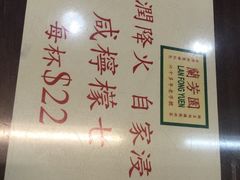 蘭芳園
LAN FONG YUEN
潤降火 自家浸
咸檸檬七
每杯$22